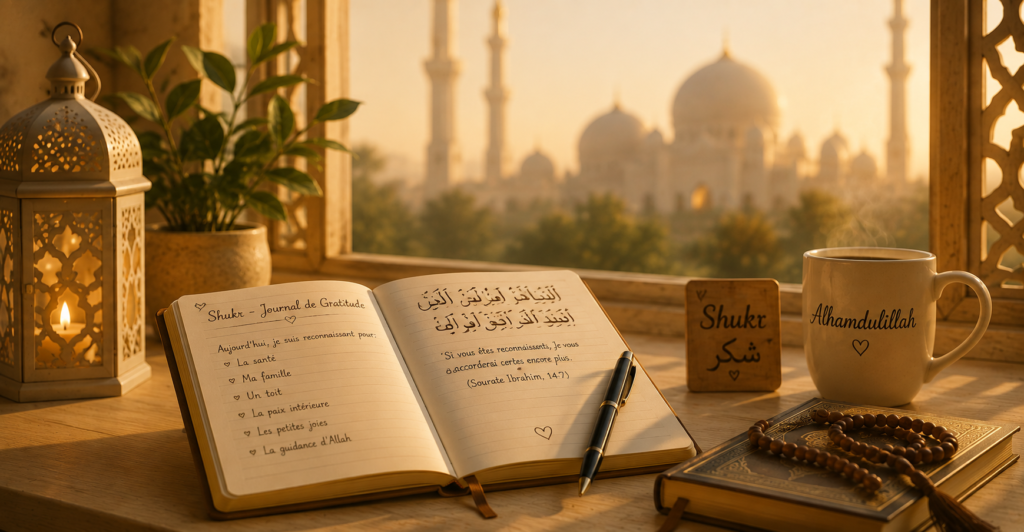 Shukr – Journal de Gratitude
Aujourd'hui, je suis reconnaissant pour:
La santé
Ma famille
Un toit
La paix intérieure
Les petites joies
La guidance d'Allah
"Si vous êtes reconnaissants, je vous
accorderai certes encore plus.
(Sourate Ibrahim, 14.7)
Shukr
شكر
Alhamdulillah